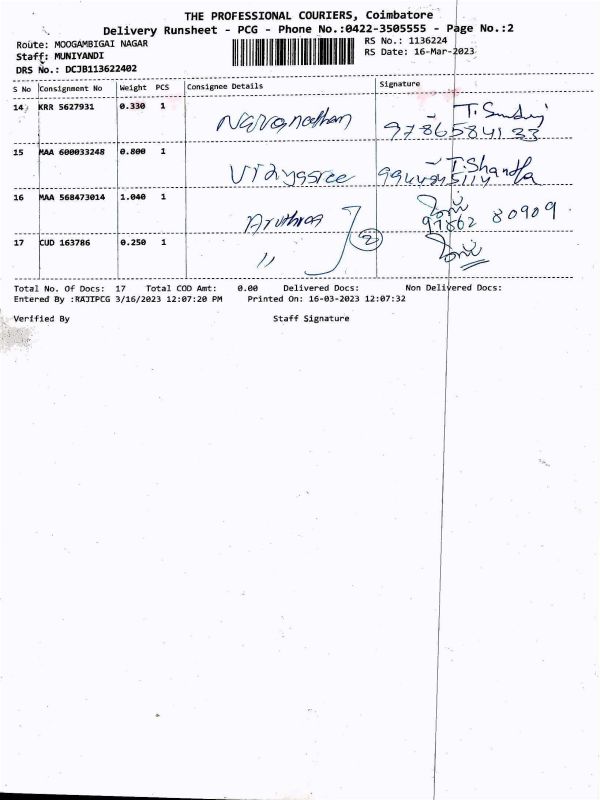 THE PROFESSIONAL COURIERS, Coimbatore
Delivery Runsheet - PCG - Phone No.:0422-3505555 - Page No.:2
Route: MOOGAMBIGAI NAGAR RS No.: 1136224
Staff: MUNIYANDI RS Date: 16-Mar-2023
DRS No.: DCJB113622402
S No Consignment No Weight PCS Consignee Details Signature
14 KRR 5627931 0.330 1
T.
9786584133
15 MAA 600033248 0.800 1 Vidyasree T.Shandla
16 MAA 568473014 1.040 1 Aruthraa
97862 80909
17 CUD 163786 0.250 1 〃 2
Total No. Of Docs: 17 Total COD Amt: 0.00 Delivered Docs: Non Delivered Docs:
Entered By :RAJIPCG 3/16/2023 12:07:20 PM Printed On: 16-03-2023 12:07:32
Verified By Staff Signature